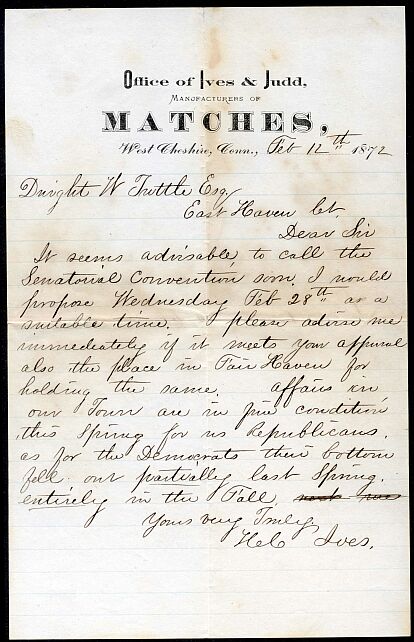 Office of Ives & Judd,
Manufacturers of
MATCHES,
West Cheshire, Conn., Feb 12th 1872
Dwight W Tuttle Esq,
East Haven Ct.
Dear Sir
It seems advisable to call the
Senatorial Convention soon. I would
propose Wednesday Feb 28th as a
suitable time. please advise me
immediately if it meets your approval
also the place in Fair Haven for
holding the same. affairs in
our Town are in fine condition
this Spring for us Republicans.
as for the Democrats their bottom
fell out partially last Spring.
entirely in the Fall
Yours very Truly
Ives.